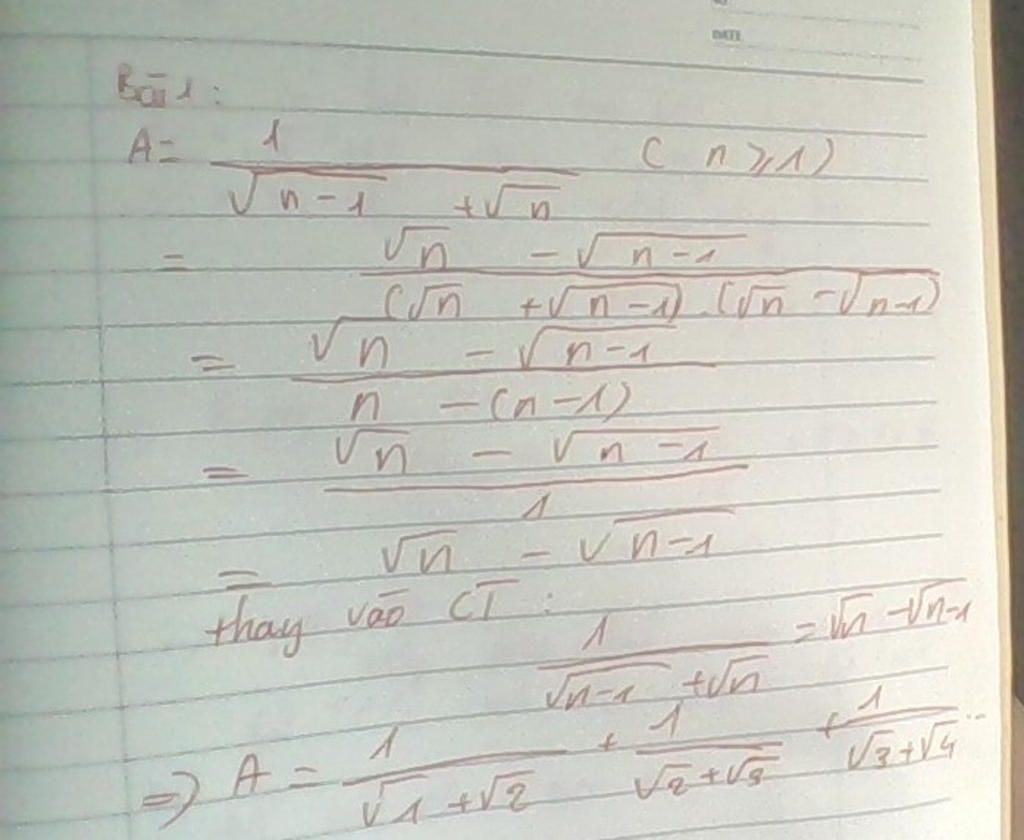 DATE
Bài 1:
A = \frac{1}{\sqrt{n-1} + \sqrt{n}} ( n ⩾ 1 )
= \frac{\sqrt{n} - \sqrt{n-1}}{(\sqrt{n} + \sqrt{n-1}).(\sqrt{n} - \sqrt{n-1})}
= \frac{\sqrt{n} - \sqrt{n-1}}{n - (n-1)}
= \frac{\sqrt{n} - \sqrt{n-1}}{1}
= \sqrt{n} - \sqrt{n-1}
thay vào CT :
\frac{1}{\sqrt{n-1} + \sqrt{n}} = \sqrt{n} - \sqrt{n-1}
=> A = \frac{1}{\sqrt{1} + \sqrt{2}} + \frac{1}{\sqrt{2} + \sqrt{3}} + \frac{1}{\sqrt{3} + \sqrt{4}} ...